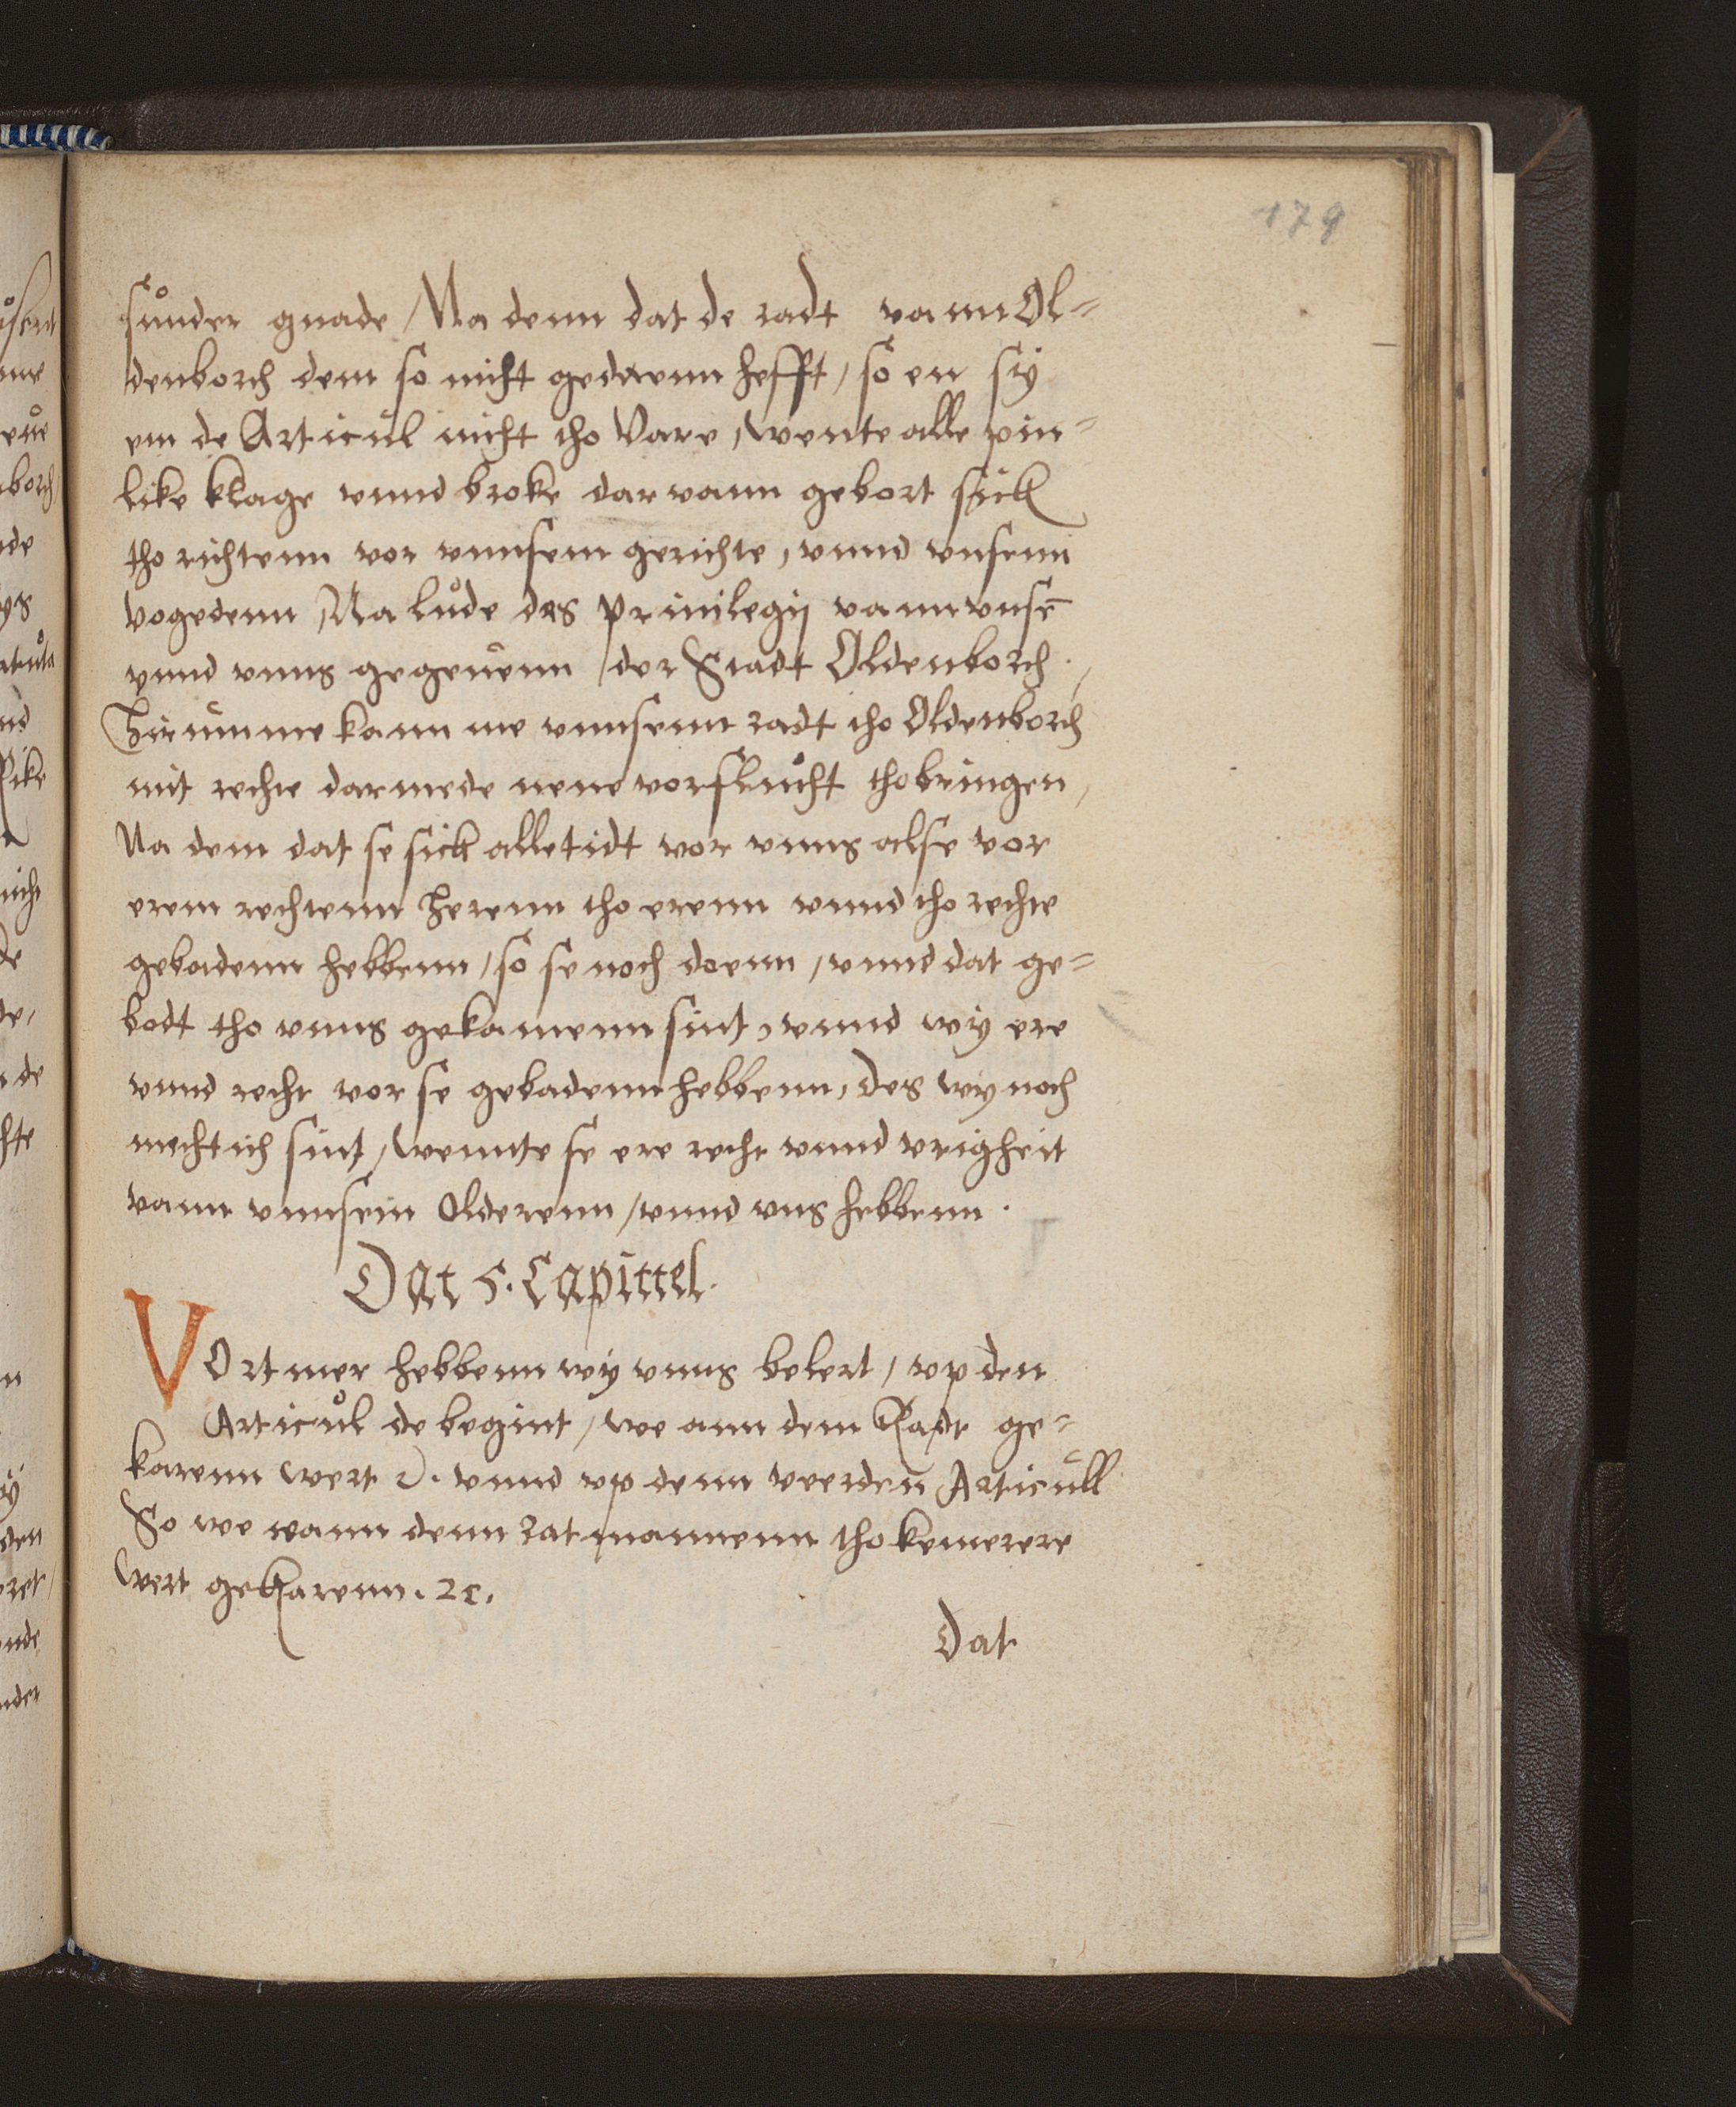 179
sůnder gnade / Na denn dat de radt vann Ol=
denborch dem so nicht gedaenn hefft / so en sy
em de Articůl nicht tho Vare / wente alle pin=
like klage vnnd broke dar vann gebort sick
tho richtenn vor vnnsem gerichte, vnnd vnsenn
vogedenn / Na lůde des Priuilegij vann vnsē
vnnd vnns gegeuenn / der Stadt Oldenborch.
Hir umme kann me vnnsemt radt tho Oldenborch
mit rechte darmede nene vorflucht tho bringen,
Na dem dat se sick alletidt vor vnns alse vor
erem rechtenn Herenn tho erenn vnnd tho rechte
gebadenn hebbenn / so se noch doenn / vnnd dat ge=
bodt tho vnns gekamenn sint, vnnd wy ere
vnnd recht vor se gebadenn hebbenn, des wy noch
mechtich sint / wennte se ere recht vnnd vrigheit
vann vnnsem Olderenn / vnnd vns hebbenn.
Dat 5. Capittel.
VOrtmer hebbenn wy vnns belert / vp den
Articůl de begint / we ann dem Radt ge=
karenn wert ꝛc. vnnd vp denn veerden Articůll
So we vann denn ratmannenn tho kemerere
wert gekarenn. ꝛc.
Dat